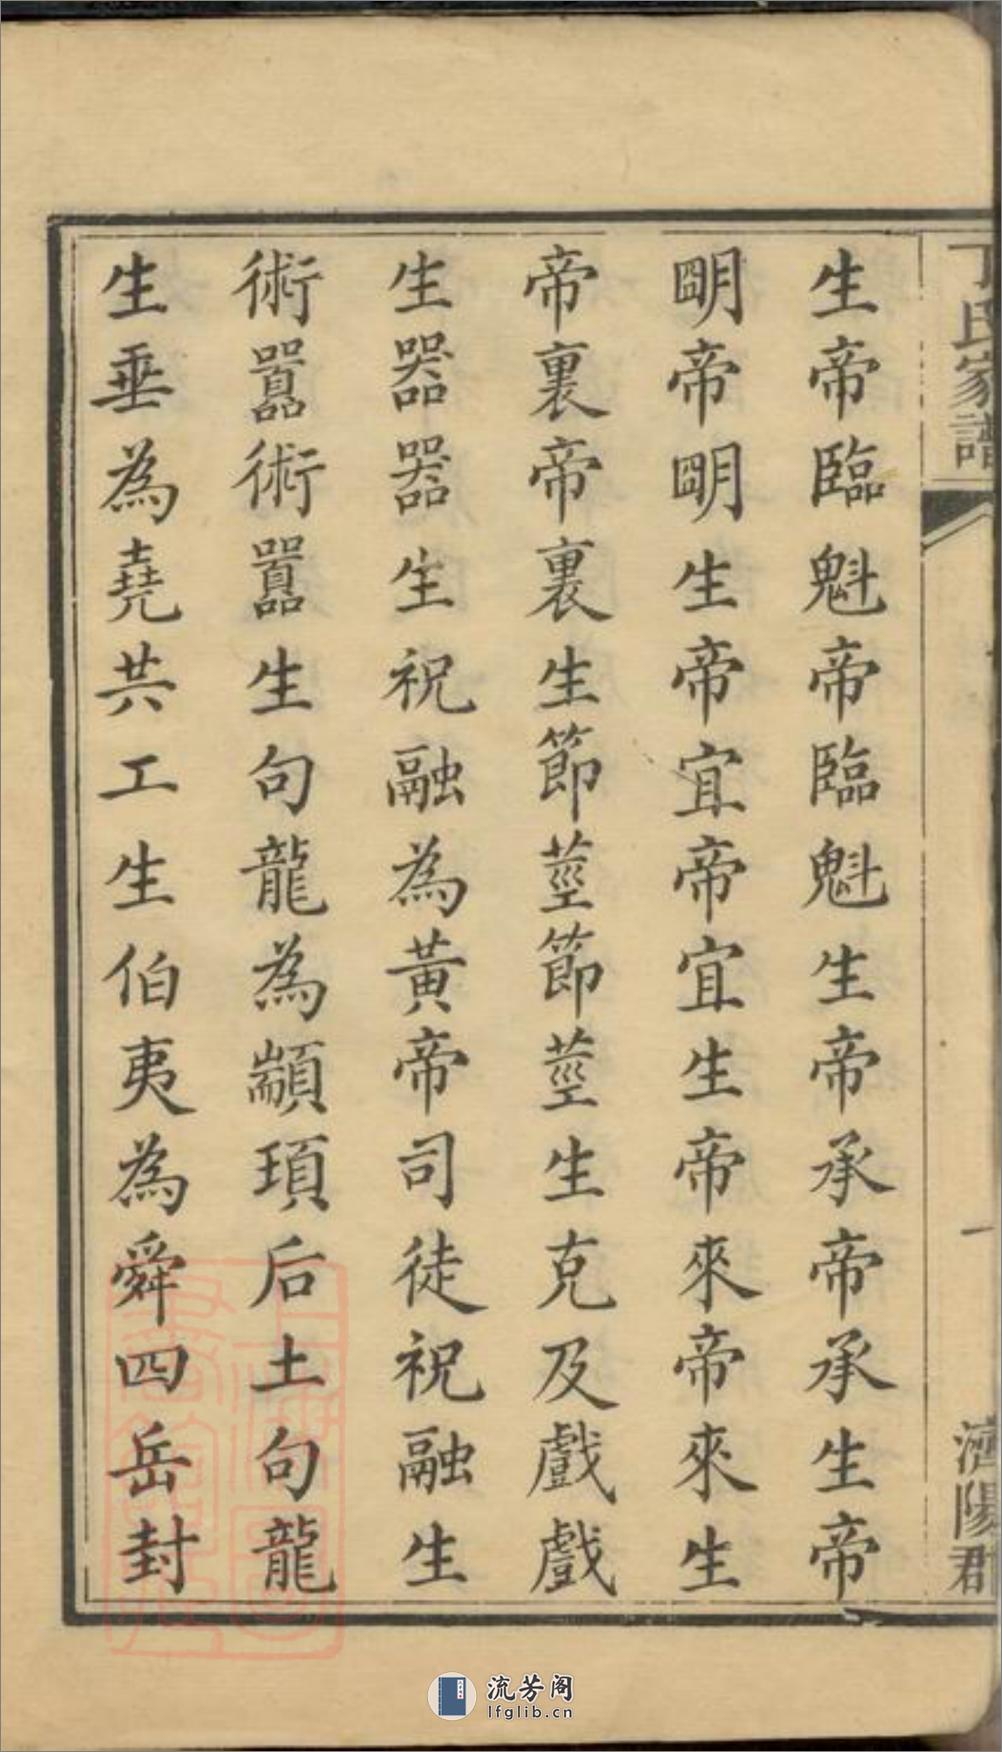 丁氏家譜
一
濟陽郡
生帝臨魁帝臨魁生帝承帝承生帝
朙帝朙生帝宜帝宜生帝來帝來生
帝裏帝裏生節莖節莖生克及戲戲
生器器生祝融為黃帝司徒祝融生
術嚣術嚣生句龍為顓頊后土句龍
生垂為堯共工生伯夷為舜四岳封
上海圖書館藏
流芳阁
lfglib.cn